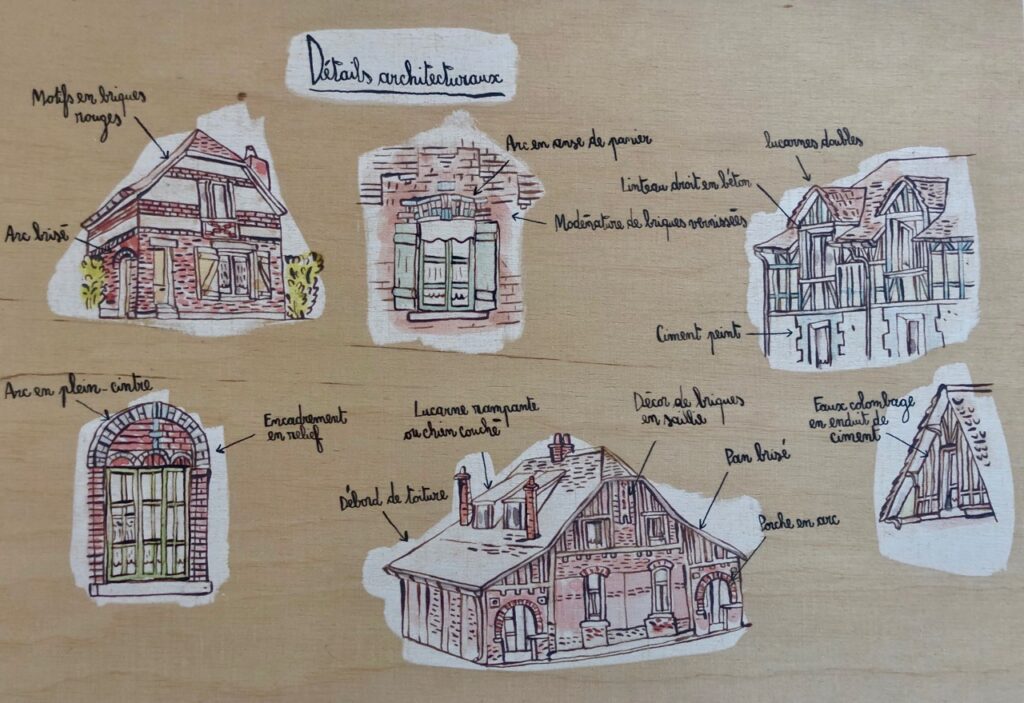 Détails architecturaux
Motifs en briques
rouges
Arc brisé
Arc en anse de panier
Modénature de briques vernissées
lucarnes doubles
Linteau droit en béton
Ciment peint
Arc en plein-cintre
Encadrement
en relief
Lucarne rampante
ou chien couché
Débord de toiture
Décor de briques
en saillie
Pan brisé
Porche en arc
Faux colombage
en enduit de
ciment